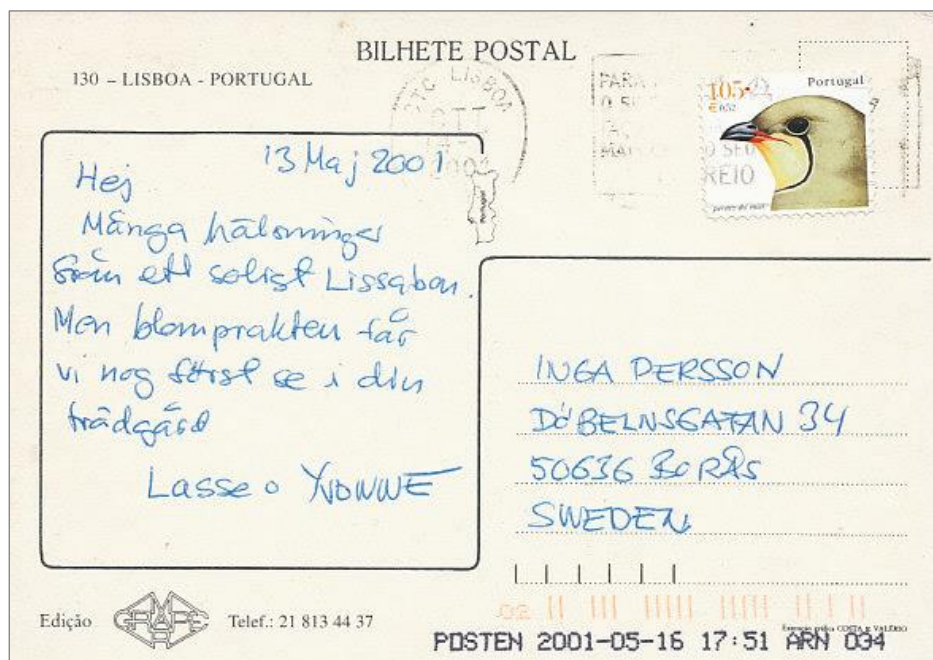 BILHETE POSTAL
130 – LISBOA - PORTUGAL
CTC LISBOA
PARA
O SEU
REIO
105.
€0,52
Portugal
Portugal
13 Maj 2001
Hej
Många hälsningar
från ett soligt Lissabon.
Men blomprakten får
vi nog först se i din
trädgård
Lasse o YVONNE
INGA PERSSON
DÖBELNSGATAN 34
50636 BORÅS
SWEDEN
Edição
GRAPE
Telef.: 21 813 44 37
02
COSTA & VALÉRIO
POSTEN 2001-05-16 17:51 ARN 034